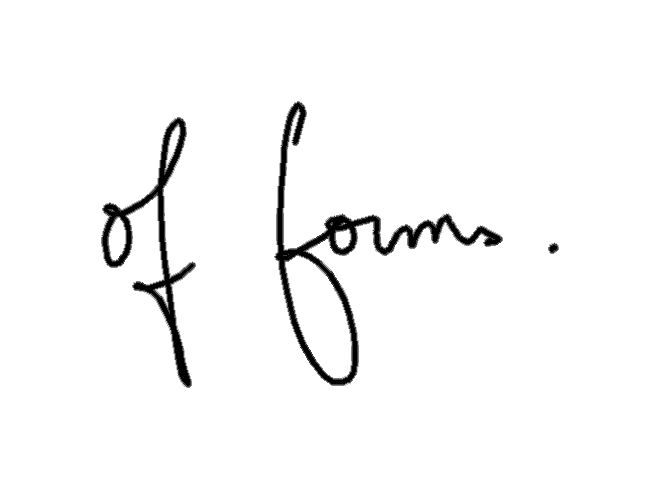 of forms .